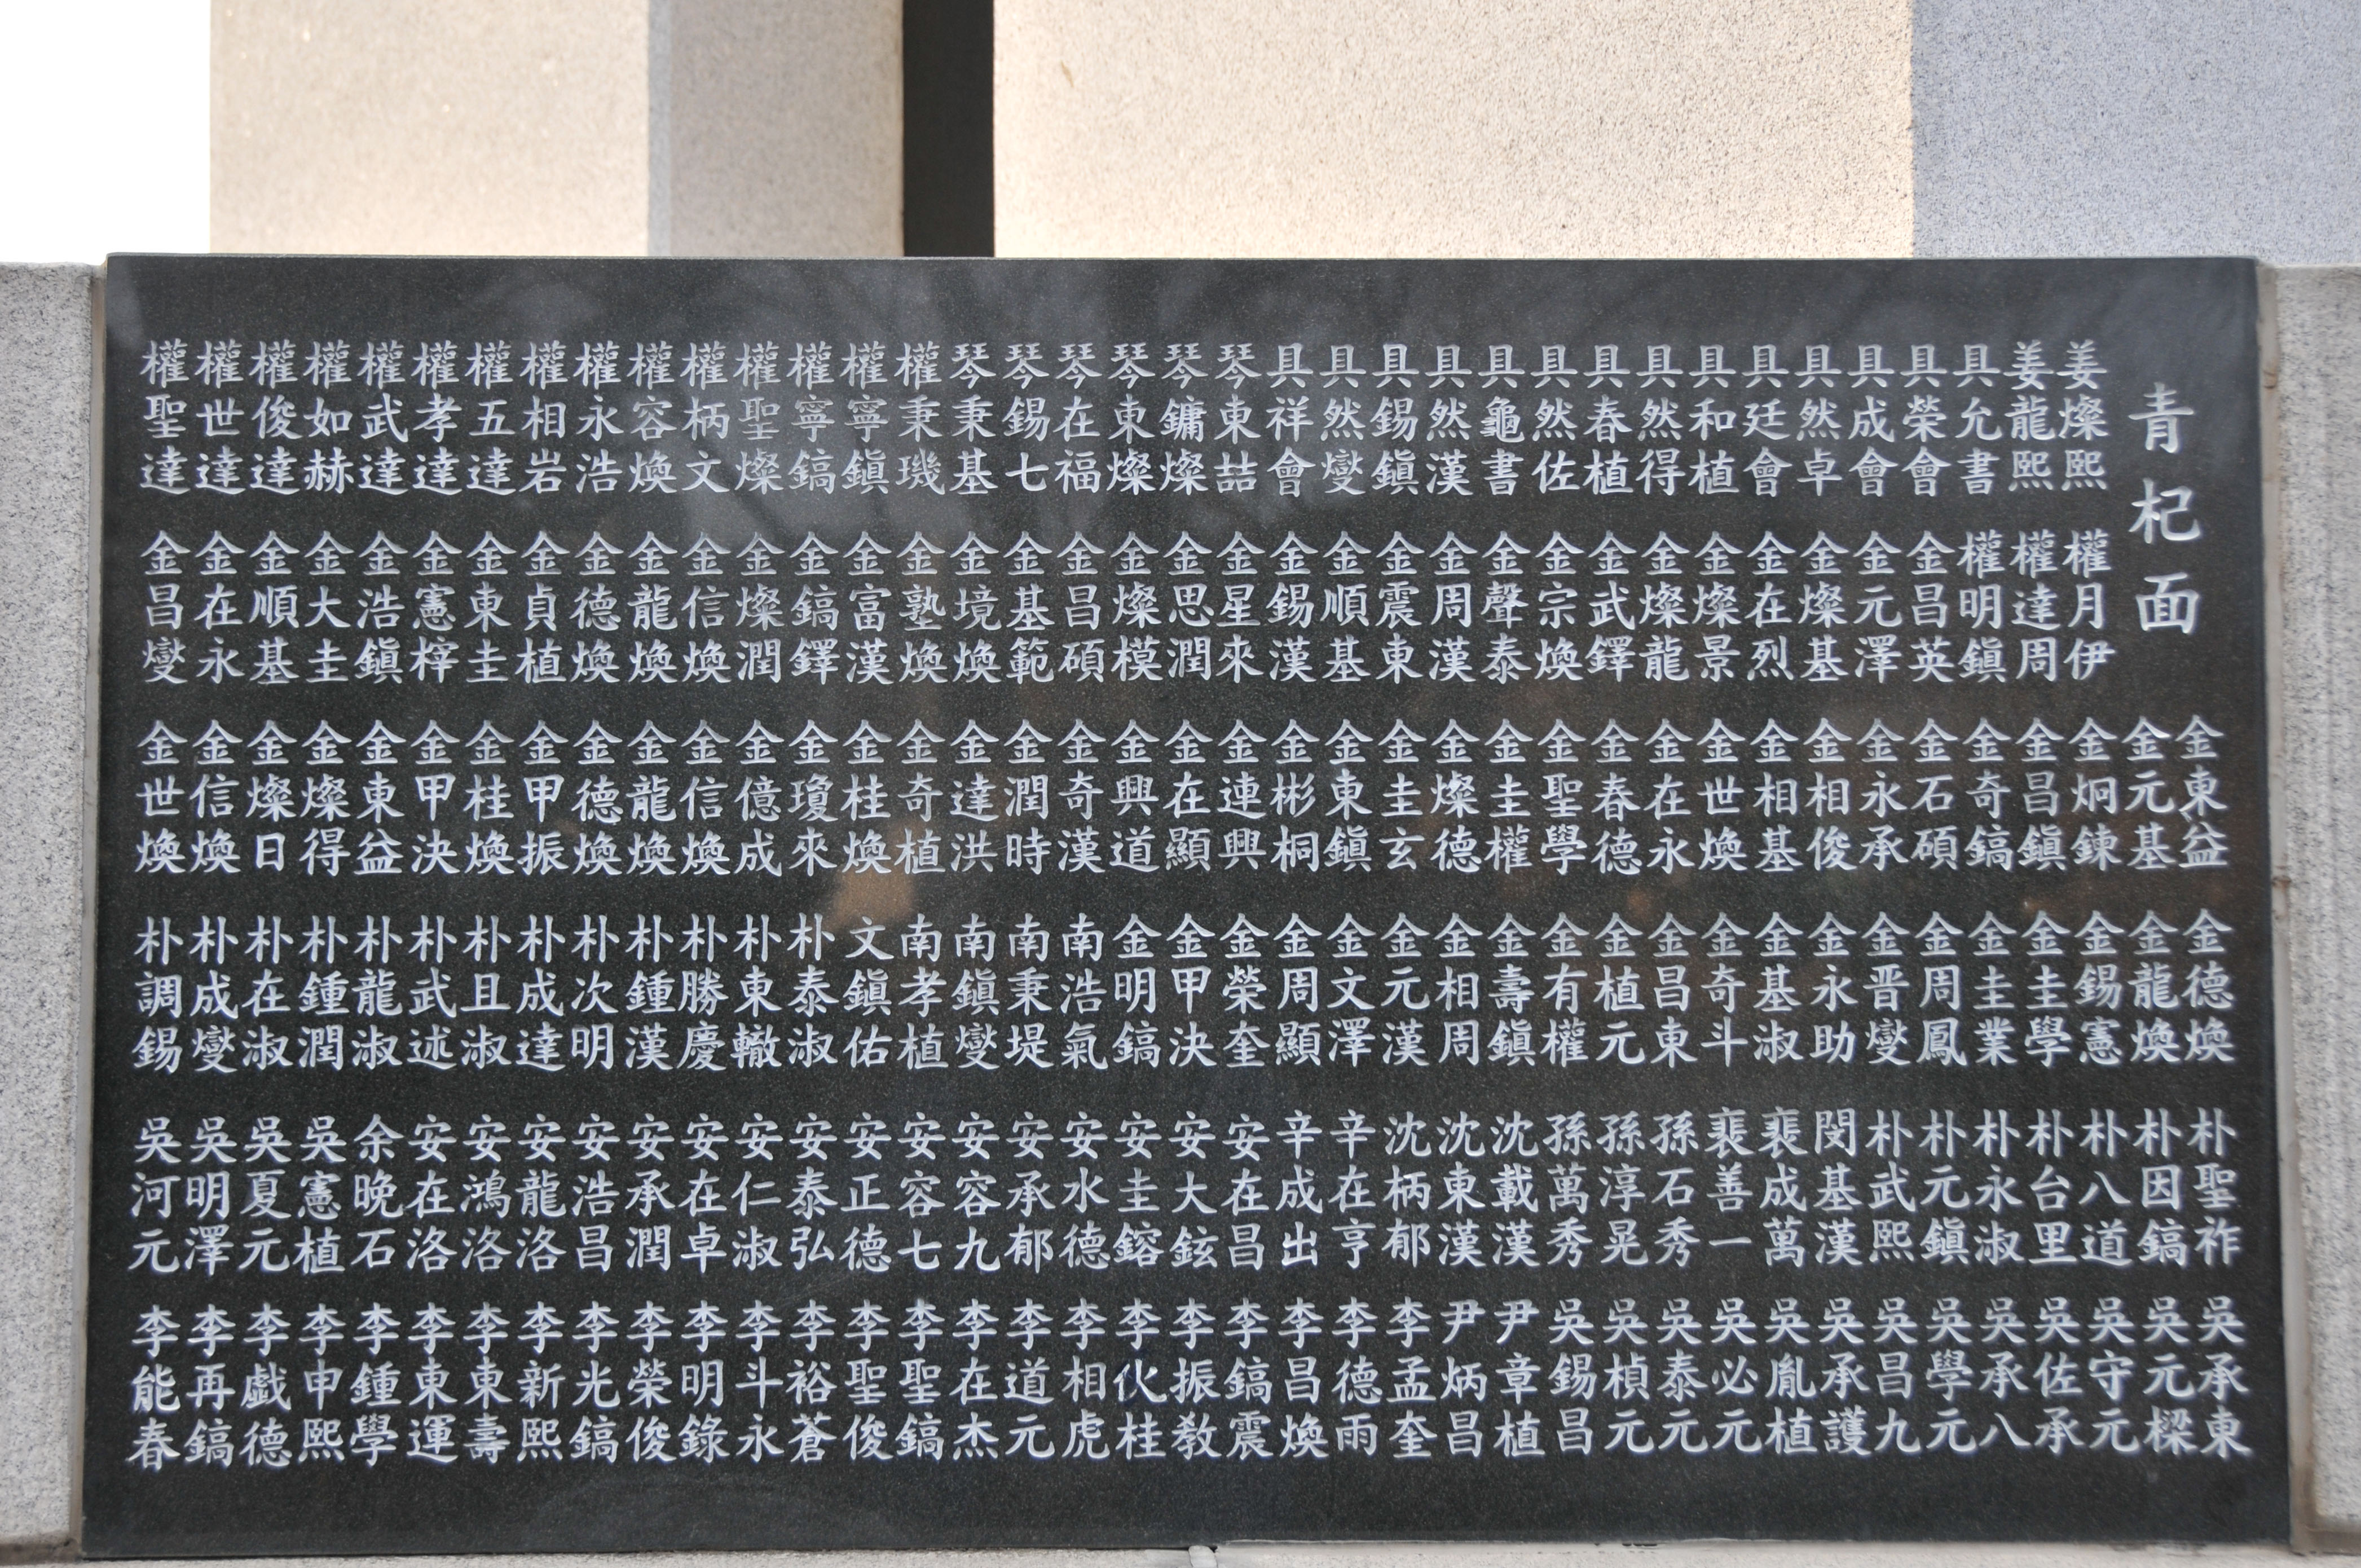 青杞面
姜燦熙
姜龍熙
具允書
具榮會
具成會
具然卓
具廷會
具和植
具然得
具春植
具然佐
具龜書
具然漢
具錫鎭
具然燮
具祥會
琴東喆
琴鏞燦
琴東燦
琴在福
琴錫七
琴秉基
權秉璣
權寧鎭
權寧鎬
權聖燦
權柄文
權容煥
權永浩
權相岩
權五達
權孝達
權武達
權如赫
權俊達
權世達
權聖達
權月伊
權達周
權明鎭
金昌英
金元澤
金燦基
金在烈
金燦景
金燦龍
金武鐸
金宗煥
金聲泰
金周漢
金震東
金順基
金錫漢
金星來
金思潤
金燦模
金昌碩
金基範
金境煥
金塾煥
金富漢
金鎬鐸
金燦潤
金信煥
金龍煥
金德煥
金貞植
金東圭
金憲榟
金浩鎭
金大圭
金順基
金在永
金昌燮
金東益
金元基
金炯鍊
金昌鎭
金奇鎬
金石碩
金永承
金相俊
金相基
金世煥
金在永
金春德
金聖學
金圭權
金燦德
金圭玄
金東鎭
金彬桐
金連興
金在顯
金興道
金奇漢
金潤時
金達洪
金奇植
金桂煥
金瓊來
金億成
金信煥
金龍煥
金德煥
金甲振
金桂煥
金甲決
金東益
金燦得
金燦日
金信煥
金世煥
金德煥
金龍煥
金錫憲
金圭學
金圭業
金周鳳
金晋燮
金永助
金基淑
金奇斗
金昌東
金植元
金有權
金壽鎭
金相周
金元漢
金文澤
金周顯
金榮奎
金甲決
金明鎬
南浩氣
南秉堤
南鎭燮
南孝植
文鎭佑
朴泰淑
朴東轍
朴勝慶
朴鍾漢
朴次明
朴成達
朴且淑
朴武述
朴龍淑
朴鍾潤
朴在淑
朴成燮
朴調錫
朴聖祚
朴因鎬
朴八道
朴台里
朴永淑
朴元鎭
朴武熙
閔基漢
裵成萬
裵善一
孫石秀
孫淳晃
孫萬秀
沈載漢
沈東漢
沈柄郁
辛在亨
辛成出
安在昌
安大鉉
安圭鎔
安水德
安承郁
安容九
安容七
安正德
安泰弘
安仁淑
安在卓
安承潤
安浩昌
安龍洛
安鴻洛
安在洛
余晩石
吳憲植
吳夏元
吳明澤
吳河元
吳承東
吳元樑
吳守元
吳佐承
吳承八
吳學元
吳昌九
吳承護
吳胤植
吳必元
吳泰元
吳楨元
吳錫昌
尹章植
尹炳昌
李孟奎
李德雨
李昌煥
李鎬震
李振敎
李伙桂
李相虎
李道元
李在杰
李聖鎬
李聖俊
李裕蒼
李斗永
李明錄
李榮俊
李光鎬
李新熙
李東壽
李東運
李鍾學
李申熙
李戱德
李再鎬
李能春